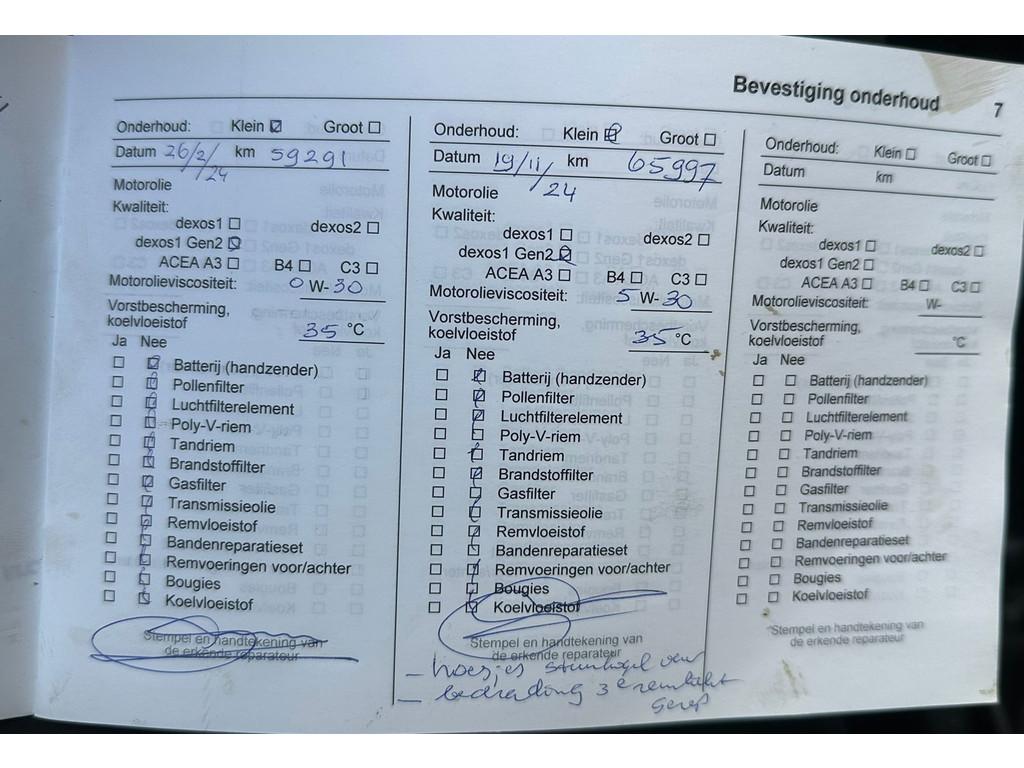 Bevestiging onderhoud 7
Onderhoud: Klein Groot
Datum 26/2/24 km 59291
Motorolie
Kwaliteit:
dexos1 dexos2
dexos1 Gen2
ACEA A3 B4 C3
Motorolieviscositeit: 0 W- 30
Vorstbescherming,
koelvloeistof 35 °C
Ja Nee
Batterij (handzender)
Pollenfilter
Luchtfilterelement
Poly-V-riem
Tandriem
Brandstoffilter
Gasfilter
Transmissieolie
Remvloeistof
Bandenreparatieset
Remvoeringen voor/achter
Bougies
Koelvloeistof
Stempel en handtekening van
de erkende reparateur
Onderhoud: Klein Groot
Datum 19/11/24 km 65997
Motorolie
Kwaliteit:
dexos1 dexos2
dexos1 Gen2
ACEA A3 B4 C3
Motorolieviscositeit: 5 W- 30
Vorstbescherming,
koelvloeistof 35 °C
Ja Nee
Batterij (handzender)
Pollenfilter
Luchtfilterelement
Poly-V-riem
Tandriem
Brandstoffilter
Gasfilter
Transmissieolie
Remvloeistof
Bandenreparatieset
Remvoeringen voor/achter
Bougies
Koelvloeistof
Stempel en handtekening van
de erkende reparateur
- hoesjes stuurkogel voor
- bedrading 3e remlicht
gerep
Onderhoud: Klein Groot
Datum km
Motorolie
Kwaliteit:
dexos1 dexos2
dexos1 Gen2
ACEA A3 B4 C3
Motorolieviscositeit: W-
Vorstbescherming,
koelvloeistof °C
Ja Nee
Batterij (handzender)
Pollenfilter
Luchtfilterelement
Poly-V-riem
Tandriem
Brandstoffilter
Gasfilter
Transmissieolie
Remvloeistof
Bandenreparatieset
Remvoeringen voor/achter
Bougies
Koelvloeistof
Stempel en handtekening van
de erkende reparateur